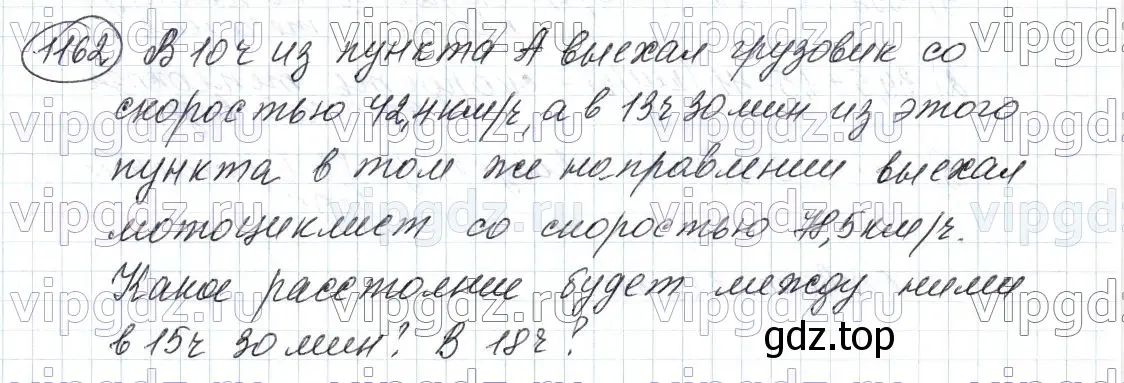 1162 В 10 ч из пункта А выехал грузовик со
скоростью 42,4 км/ч, а в 13 ч 30 мин из этого
пункта в том же направлении выехал
мотоциклист со скоростью 78,5 км/ч.
Какое расстояние будет между ними
в 15 ч 30 мин? В 18 ч?
gdz.top
vipgdz.ru